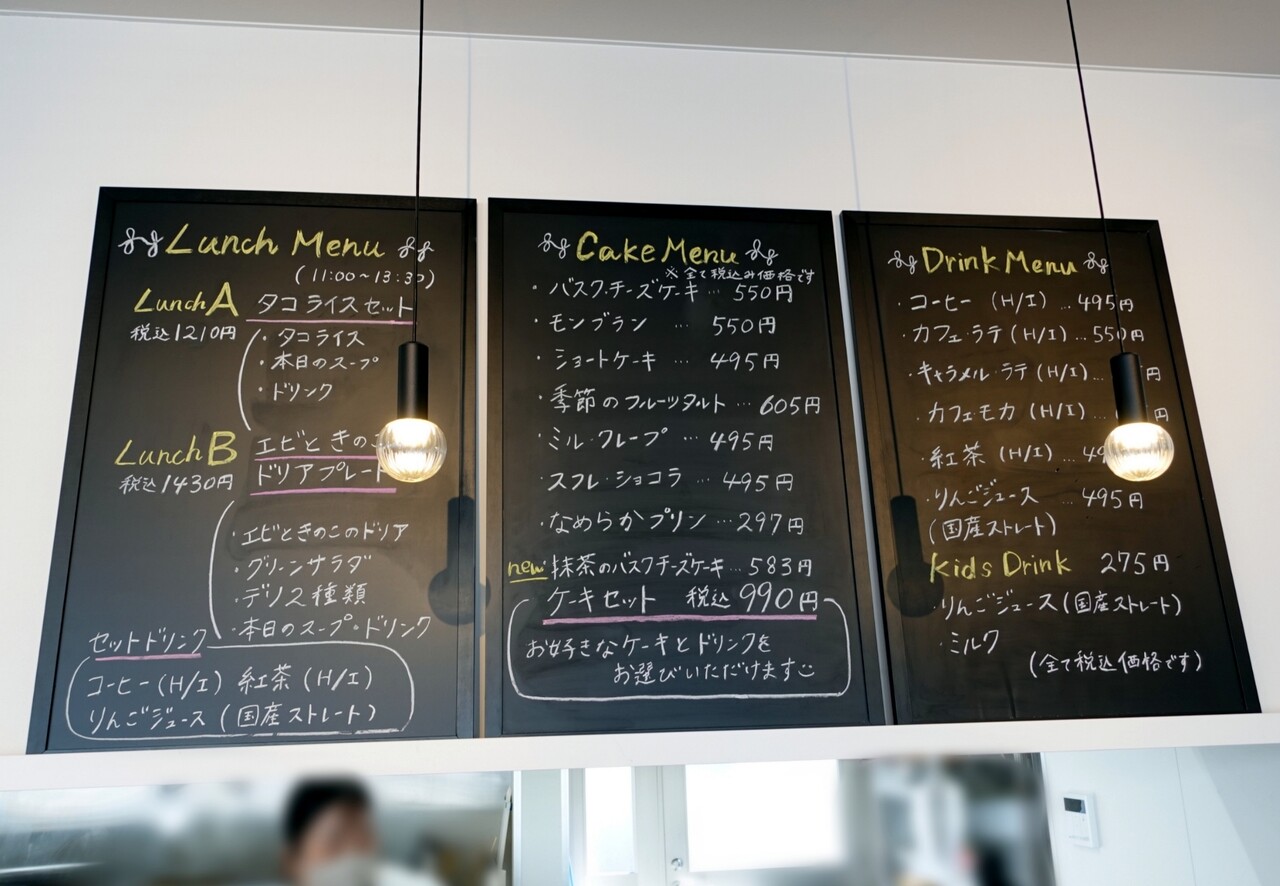 Lunch Menu
(11:00〜13:30)
Lunch A タコライスセット
税込1210円
・タコライス
・本日のスープ
・ドリンク
Lunch B エビときの
税込1430円 ドリアプレート
・エビときのこのドリア
・グリーンサラダ
・デリ2種類
・本日のスープ・ドリンク
セットドリンク
コーヒー(H/I) 紅茶(H/I)
りんごジュース(国産ストレート)
Cake Menu
※全て税込み価格です
・バスクチーズケーキ… 550円
・モンブラン … 550円
・ショートケーキ … 495円
・季節のフルーツタルト … 605円
・ミル・クレープ … 495円
・スフレ・ショコラ … 495円
・なめらかプリン … 297円
new 抹茶のバスクチーズケーキ… 583円
ケーキセット 税込 990円
お好きなケーキとドリンクを
お選びいただけます
Drink Menu
・コーヒー (H/I) … 495円
・カフェ・ラテ (H/I) … 550円
・キャラメル・ラテ (H/I) … 円
・カフェモカ (H/I) … 円
・紅茶 (H/I) …
・りんごジュース … 495円
(国産ストレート)
Kids Drink 275円
・りんごジュース(国産ストレート)
・ミルク
(全て税込価格です)